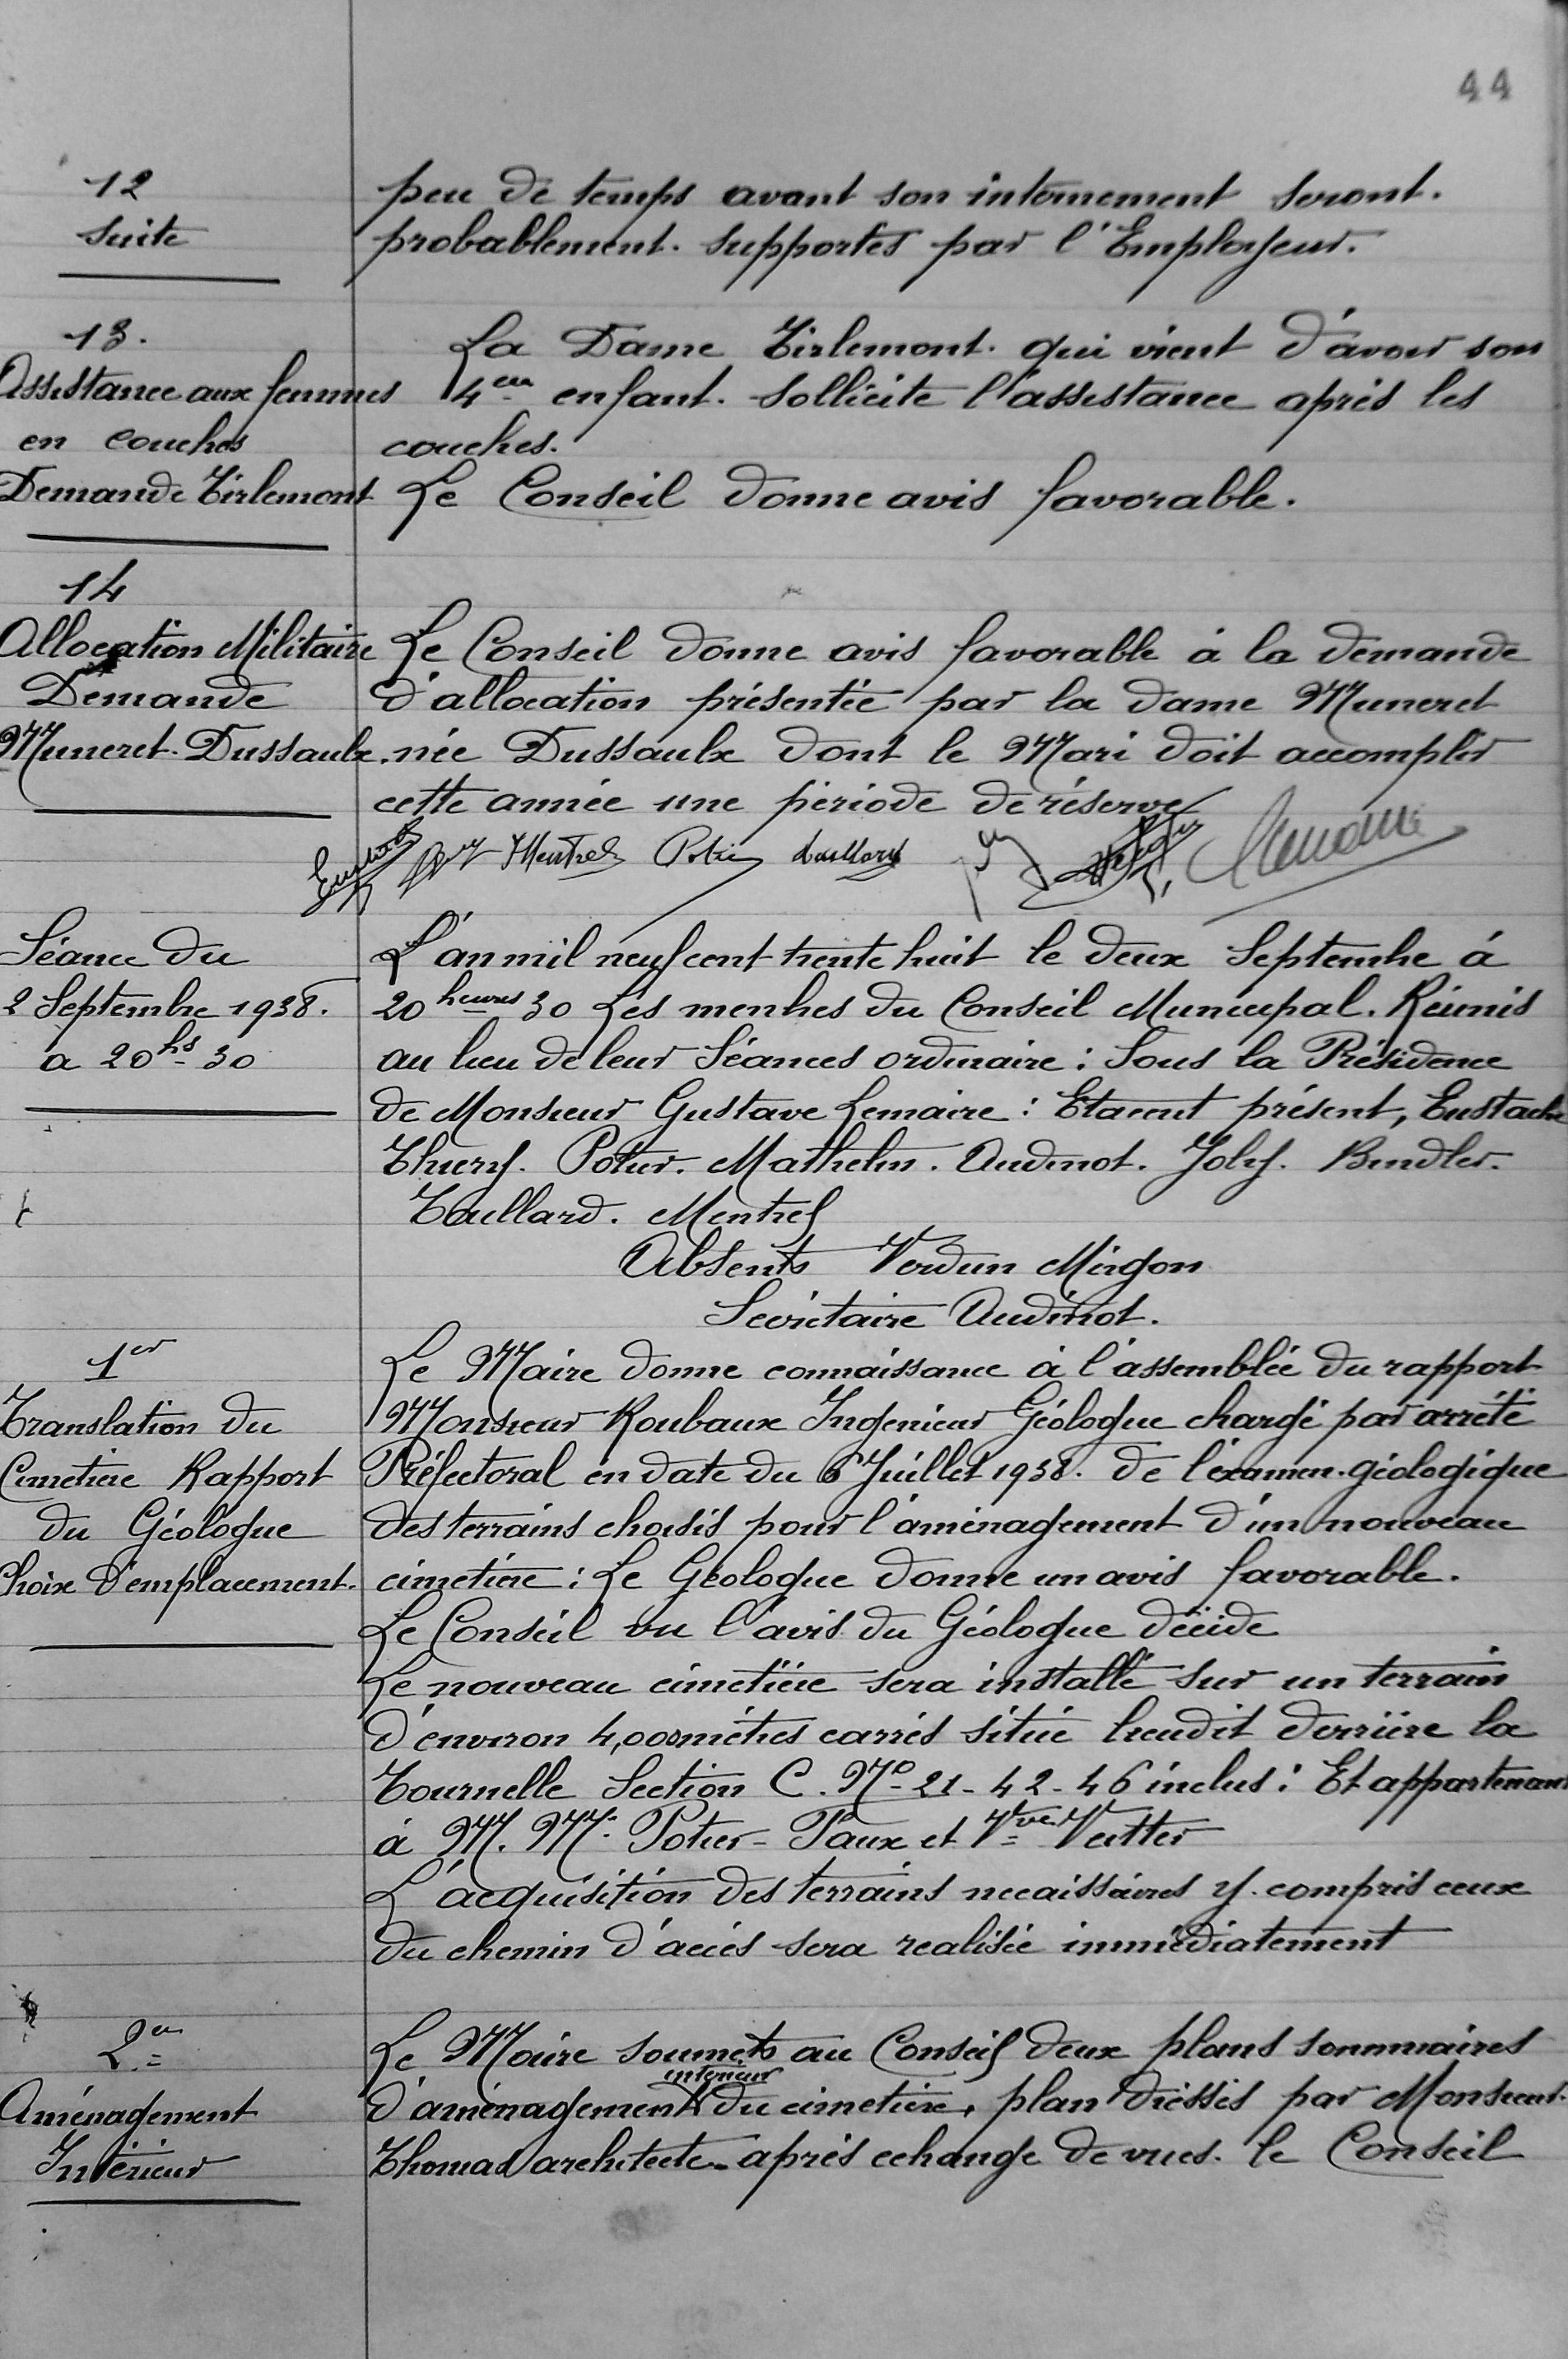 44
12
suite
peu de temps avant son internement seront.
probablement. supportés par l'Employeur.
13.
Assistance aux femmes
en couches
Demande Tirlemont
La Dame Tirlemont. qui vient d'avoir son
4em enfant. sollicite l'assistance après les
couches.
Le Conseil donne avis favorable.
14
Allocation Militaire
Demande
Muneret-Dussaulx.
Le Conseil donne avis favorable à la demande
d'allocation présentée par la dame Muneret
née Dussaulx dont le Mari doit accomplir
cette année une période de réserve
Mentrel Potier
Séance du
2 Septembre 1938.
a 20hs 30
L'an mil neuf cent trente huit le deux Septembre à
20 heures 30 Les membres du Conseil Municipal. Réunis
au lieu de leur Séances ordinaire : Sous la Présidence
de Monsieur Gustave Lemaire : Etaient présent, Eustache
Thiery. Potier. Mathelin. Audinot. Joly. Bindler.
Taillard. Mentrel
Absents Verdun Mirgon
Secrétaire Audinot.
1er
Translation du
Cimetière Rapport
du Géologue
Choix d'emplacement.
Le Maire donne connaissance à l'assemblée du rapport
Monsieur Roubaux Ingenieur Géologue chargé par arrêté
Préfectoral en date du 6 Juillet 1938. de l'examen géologique
des terrains choisis pour l'aménagement d'un nouveau
cimetière : Le Géologue donne un avis favorable.
Le Conseil vu l'avis du Géologue décide
Le nouveau cimetière sera installé sur un terrain
d'environ 4,000 mètres carrés situé lieudit derrière la
Tournelle Section C. No 21-42-46 inclus : Et appartenant
à M.M. Potier - Paux et Vve Vautter
L'acquisition des terrains necaissaires y. compris ceux
du chemin d'accès sera realisée immédiatement
2em
Aménagement
Intérieur
Le Maire soumets au Conseil deux plans sommaires
d'aménagement intérieur du cimetière, plan dréssés par Monsieur.
Thomas architecte - après echange de vues. le Conseil